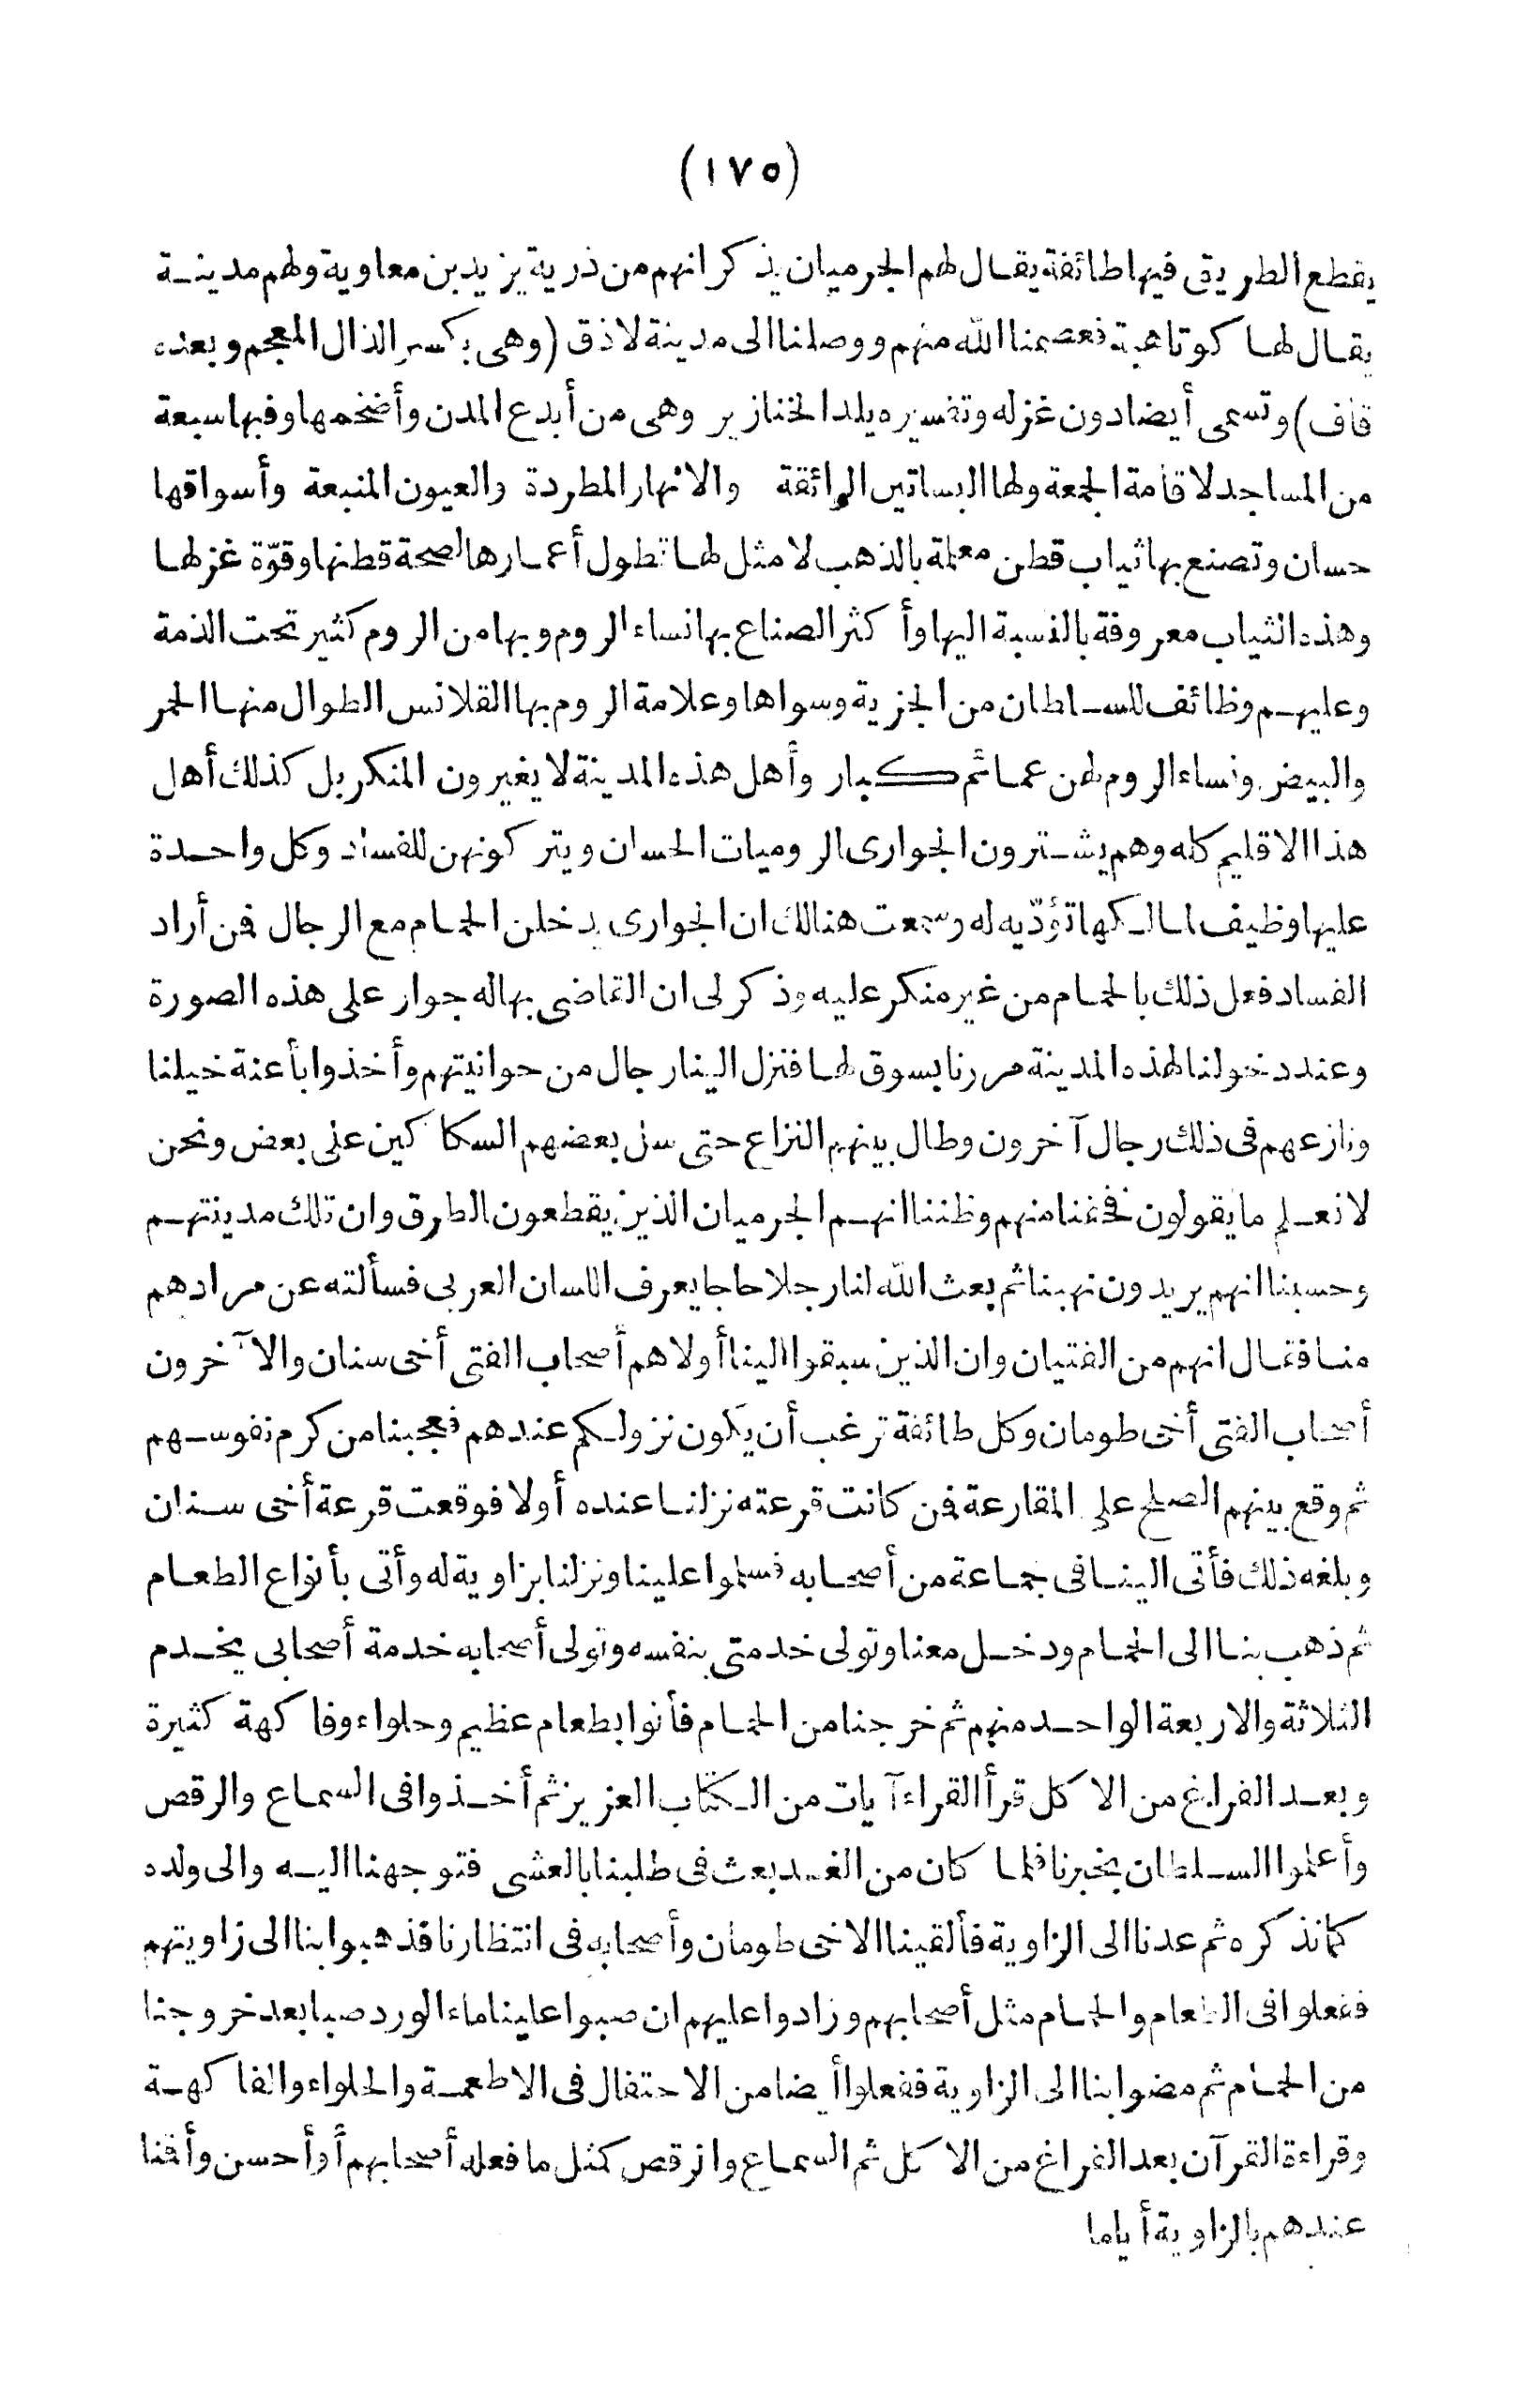 (١٧٥)
يقطع الطريق فيها طائفة يقال لهم الجرميان يذكر انهم من ذرية يزيد بن معاوية ولهم مدينة
يقال لها كوتاهية فعصمنا الله منهم ووصلنا الى مدينة لاذق (وهى بكسر الذال المعجم وبعده
قاف) وتسمى أيضا دون غزله وتفسيره بلد الخنازير وهى من أبدع المدن وأضخمها وفيها سبعة
من المساجد لاقامة الجمعة ولها البساتين الرائقة والانهار المطردة والعيون المنبعة وأسواقها
حسان وتصنع بها ثياب قطن معلمة بالذهب لا مثل لها تطول أعمارها لصحة قطنها وقوّة غزلها
وهذه الثياب معروفة بالنسبة اليها وأكثر الصناع بها نساء الروم وبها من الروم كثير تحت الذمة
وعليهم وظائف للسلطان من الجزية وسواها وعلامة الروم بها القلانس الطوال منها الحمر
والبيض ونساء الروم لهن عمائم كبار وأهل هذه المدينة لا يغيرون المنكر بل كذلك أهل
هذا الاقليم كله وهم يشترون الجوارى الروميات الحسان ويتركونهن للفساد وكل واحدة
عليها وظيف لمالكها تؤدّيه له وسمعت هنالك ان الجوارى يدخلن الحمام مع الرجال فمن أراد
الفساد فعل ذلك بالحمام من غير منكر عليه وذكر لى ان القاضى بها له جوار على هذه الصورة
وعند دخولنا لهذه المدينة مررنا بسوق لها فنزل الينا رجال من حوانيتهم وأخذوا بأعنة خيلنا
ونازعهم فى ذلك رجال آخرون وطال بينهم النزاع حتى سل بعضهم السكاكين على بعض ونحن
لا نعلم ما يقولون فخفنا منهم وظننا انهم الجرميان الذين يقطعون الطرق وان تلك مدينتهم
وحسبنا انهم يريدون نهبنا ثم بعث الله لنا رجلا حاجا يعرف اللسان العربى فسألته عن مرادهم
منا فقال انهم من الفتيان وان الذين سبقوا الينا أولا هم أصحاب الفتى أخى سنان والآخرون
أصحاب الفتى أخى طومان وكل طائفة ترغب أن يكون نزولكم عندهم فعجبنا من كرم نفوسهم
ثم وقع بينهم الصلح على المقارعة فمن كانت قرعته نزلنا عنده أولا فوقعت قرعة أخى سنان
وبلغه ذلك فأتى الينا فى جماعة من أصحابه فسلموا علينا ونزلنا بزاوية له وأتى بأنواع الطعام
ثم ذهب بنا الى الحمام ودخل معنا وتولى خدمتى بنفسه وتولى أصحابه خدمة أصحابى يخدم
الثلاثة والاربعة الواحد منهم ثم خرجنا من الحمام فأتوا بطعام عظيم وحلواء وفاكهة كثيرة
وبعد الفراغ من الاكل قرأ القراء آيات من الكتاب العزيز ثم أخذوا فى السماع والرقص
وأعلموا السلطان بخبرنا فلما كان من الغد بعث فى طلبنا بالعشى فتوجهنا اليه والى ولده
كما نذكره ثم عدنا الى الزاوية فألقينا الاخى طومان وأصحابه فى انتظارنا فذهبوا بنا الى زاويتهم
ففعلوا فى الطعام والحمام مثل أصحابهم وزادوا عليهم ان صبوا علينا ماء الورد صبا بعد خروجنا
من الحمام ثم مضوا بنا الى الزاوية ففعلوا أيضا من الاحتفال فى الاطعمة والحلواء والفاكهة
وقراءة القرآن بعد الفراغ من الاكل ثم السماع والرقص كمثل ما فعله أصحابهم أو أحسن وأقمنا
عندهم بالزاوية أياما